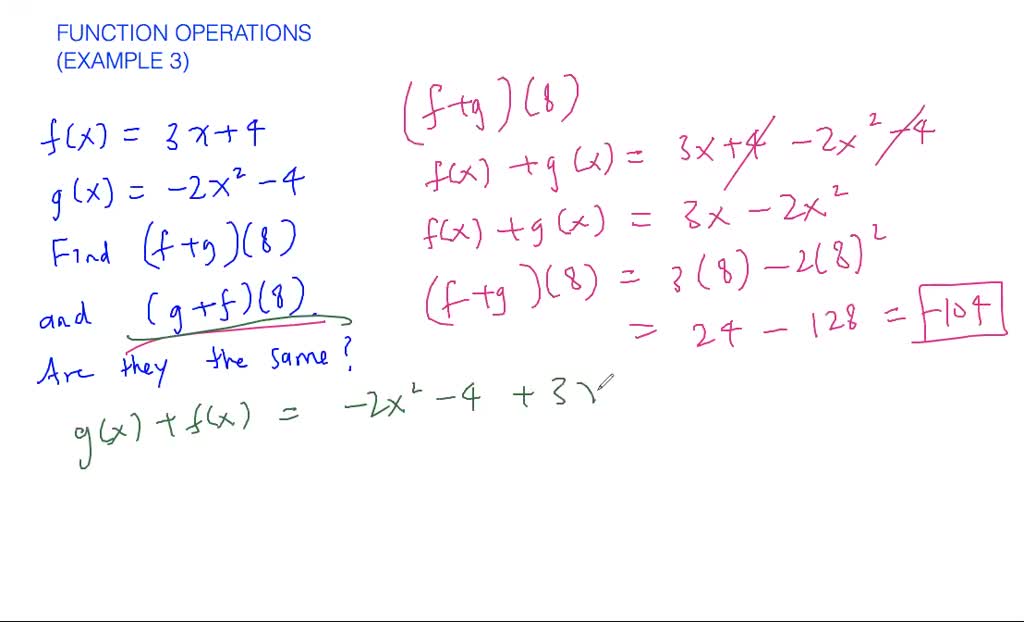 FUNCTION OPERATIONS
(EXAMPLE 3)
f(x) = 3x+4
g(x) = -2x² -4
Find (f+g)(8)
and (g+f)(8).
Are they the same?
(f+g)(8)
f(x) + g(x) = 3x+4 -2x² -4
f(x) + g(x) = 3x - 2x²
(f+g)(8) = 3(8) - 2(8)²
= 24 - 128 = -104
g(x) + f(x) = -2x² -4 + 3x